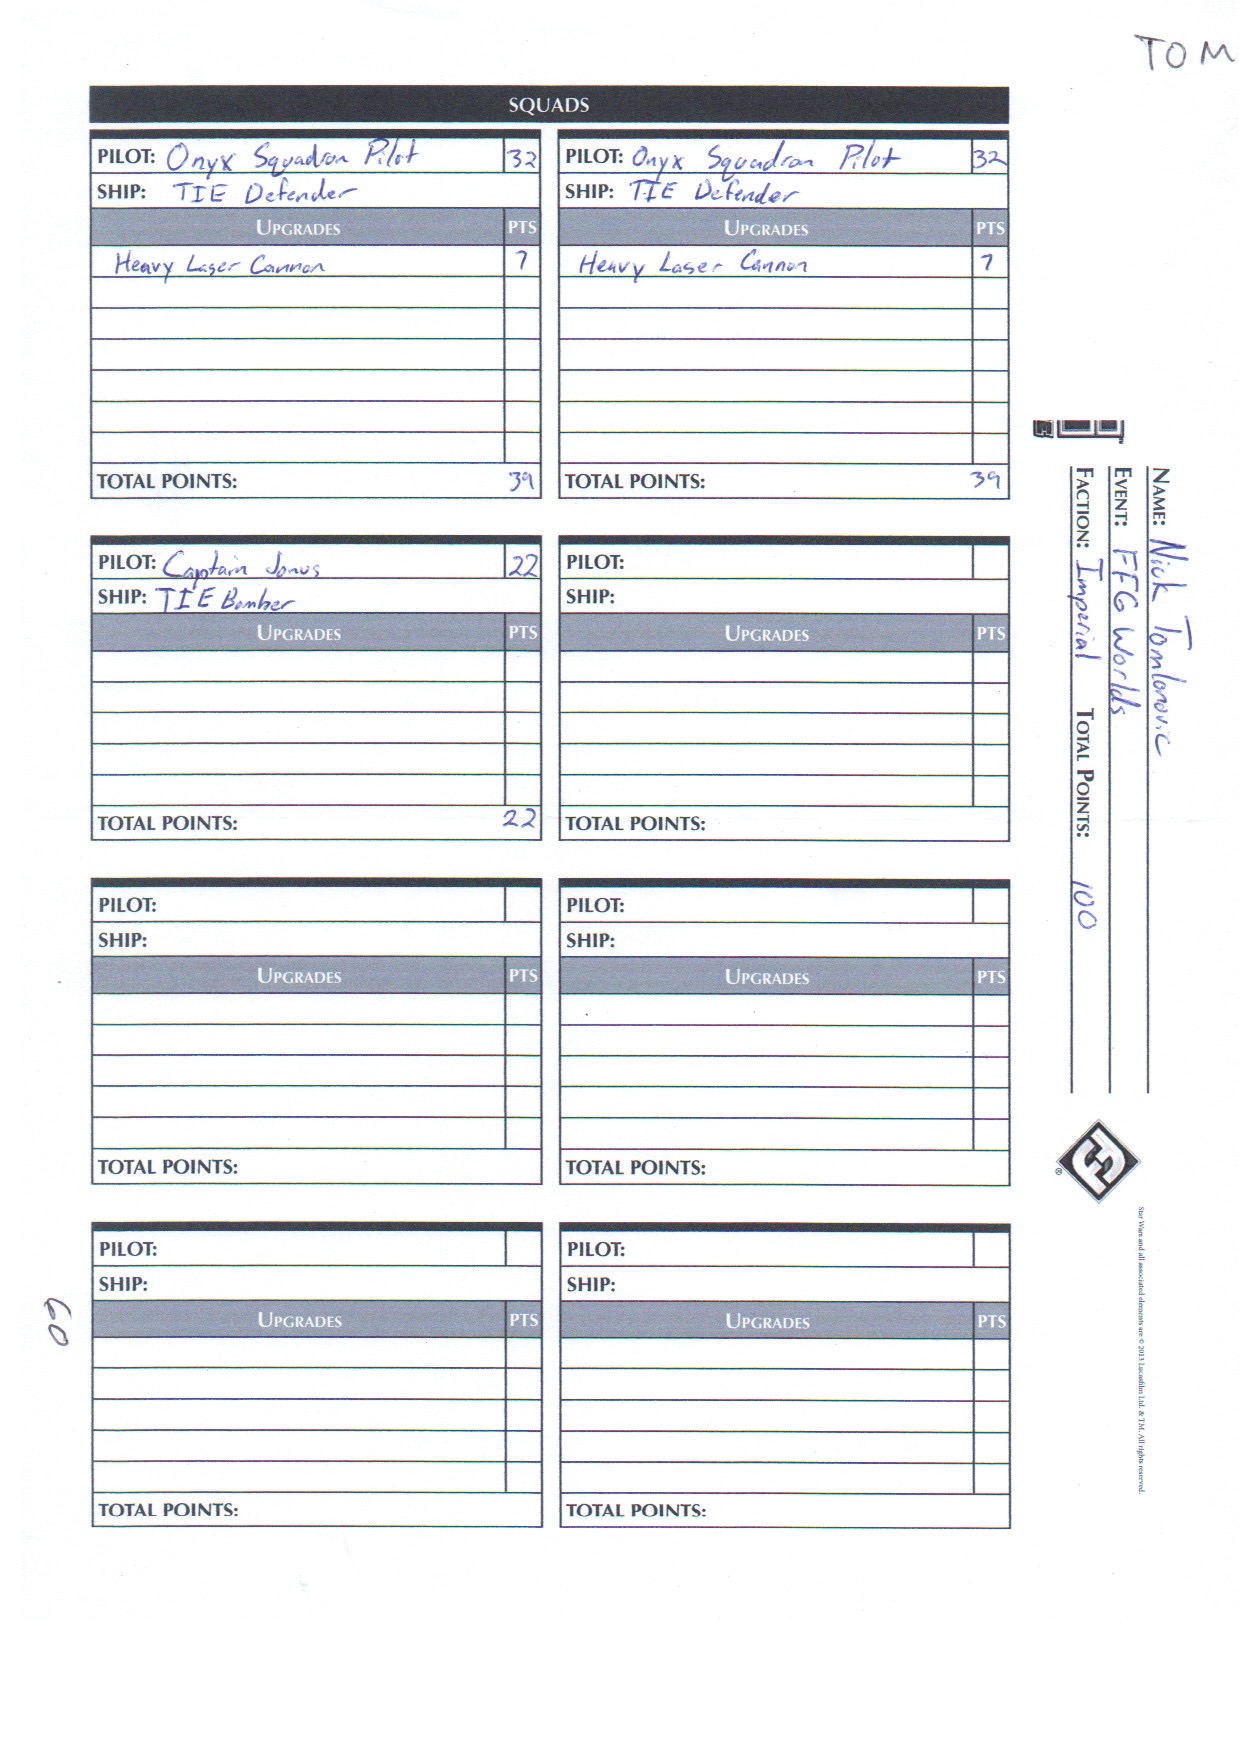 TOM
SQUADS
PILOT: Onyx Squadron Pilot 32
SHIP: TIE Defender
UPGRADES PTS
Heavy Laser Cannon 7
TOTAL POINTS: 39
PILOT: Onyx Squadron Pilot 32
SHIP: TIE Defender
UPGRADES PTS
Heavy Laser Cannon 7
TOTAL POINTS: 39
PILOT: Captain Jonus 22
SHIP: TIE Bomber
UPGRADES PTS
TOTAL POINTS: 22
PILOT:
SHIP:
UPGRADES PTS
TOTAL POINTS:
PILOT:
SHIP:
UPGRADES PTS
TOTAL POINTS:
PILOT:
SHIP:
UPGRADES PTS
TOTAL POINTS:
PILOT:
SHIP:
UPGRADES PTS
TOTAL POINTS:
PILOT:
SHIP:
UPGRADES PTS
TOTAL POINTS:
NAME: Nick Tomlanovic
EVENT: FFG Worlds
FACTION: Imperial TOTAL POINTS: 100
Star Wars and all associated elements are © 2013 Lucasfilm Ltd. & TM. All rights reserved.
60